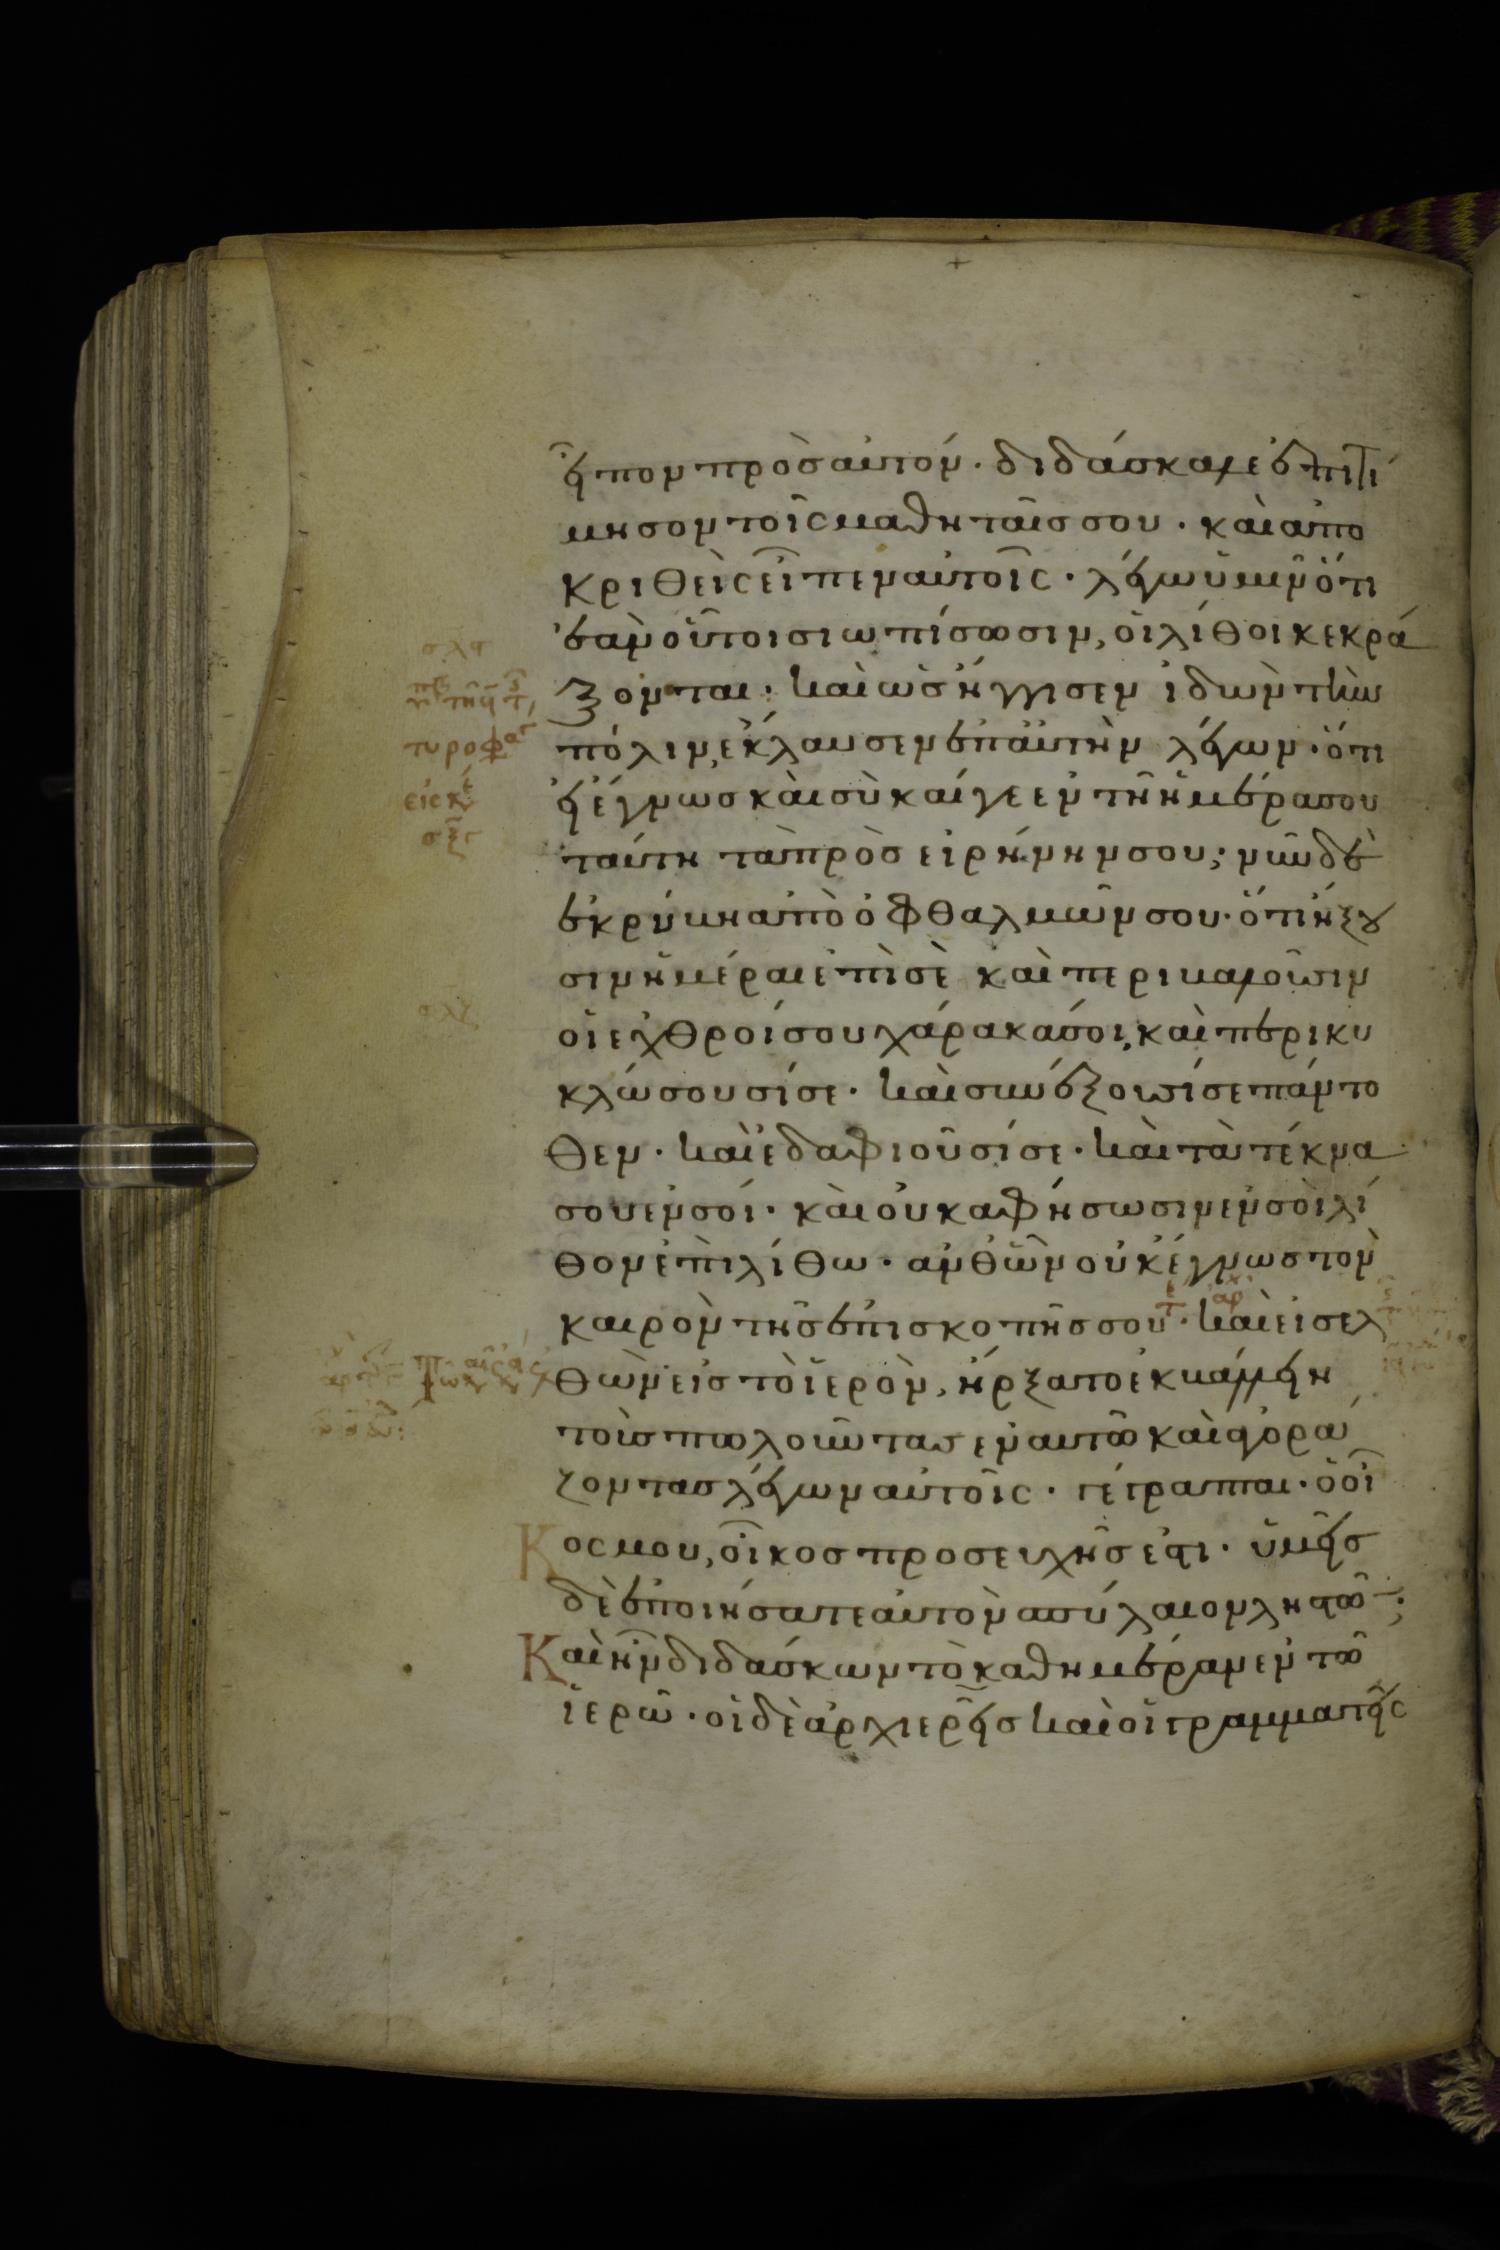 εἶπον πρὸς αὐτόν· διδάσκαλε ἐπιτί
μησον τοῖς μαθηταῖς σου· καὶ ἀπο
κριθεὶς εἶπεν αὐτοῖς· λέγω ὑμῖν ὅτι
ἐὰν οὗτοι σιωπίσωσιν, οἱ λίθοι κεκρά
ξονται· καὶ ὡς ἤγγισεν ἰδὼν τὴν
πόλιν, ἔκλαυσεν ἐπ αὐτὴν λέγων· ὅτι
εἰ ἔγνως καὶ σὺ καί γε ἐν τῆ ἡμέρα σου
ταύτη τὰ πρὸς εἰρήνην σου; νῦν δὲ
ἐκρύβη ἀπὸ ὀφθαλμῶν σου· ὅτι ἥξου
σιν ἡμέραι ἐπὶ σὲ καὶ περιβαλοῦσιν
οἱ εχθροί σου χάρακά σοι, καὶ περικυ
κλώσουσί σε· καὶ συνέξουσί σε πάντο
θεν· καὶ ἐδαφιοῦσί σε· καὶ τὰ τέκνα
σου ἐν σοί· καὶ οὐκ αφήσωσιν ἐν σοὶ λί
θον ἐπὶ λίθω· ἀνθ ὧν οὐκ ἔγνως τὸν
καιρὸν τῆς ἐπισκοπῆς σου· καὶ εἰσελ
θὼν εἰς τὸ ἱερὸν, ἤρξατο ἐκβάλλειν
τοὺς πωλοῦντας ἐν αυτῶ καὶ ἀγορά
ζοντας λέγων αὐτοῖς· γέγραπται· ὁ οἶ
Κος μου, οἶκος προσευχῆς ἐστι· ὑμεῖς
δὲ ἐποιήσατε αὐτὸν σπήλαιον ληστῶν:
Καὶ ἦν διδάσκων τὸ καθημέραν ἐν τῶ
ἱερῶ· οἱ δὲ ἀρχιερεῖς καὶ οἱ γραμματεῖς